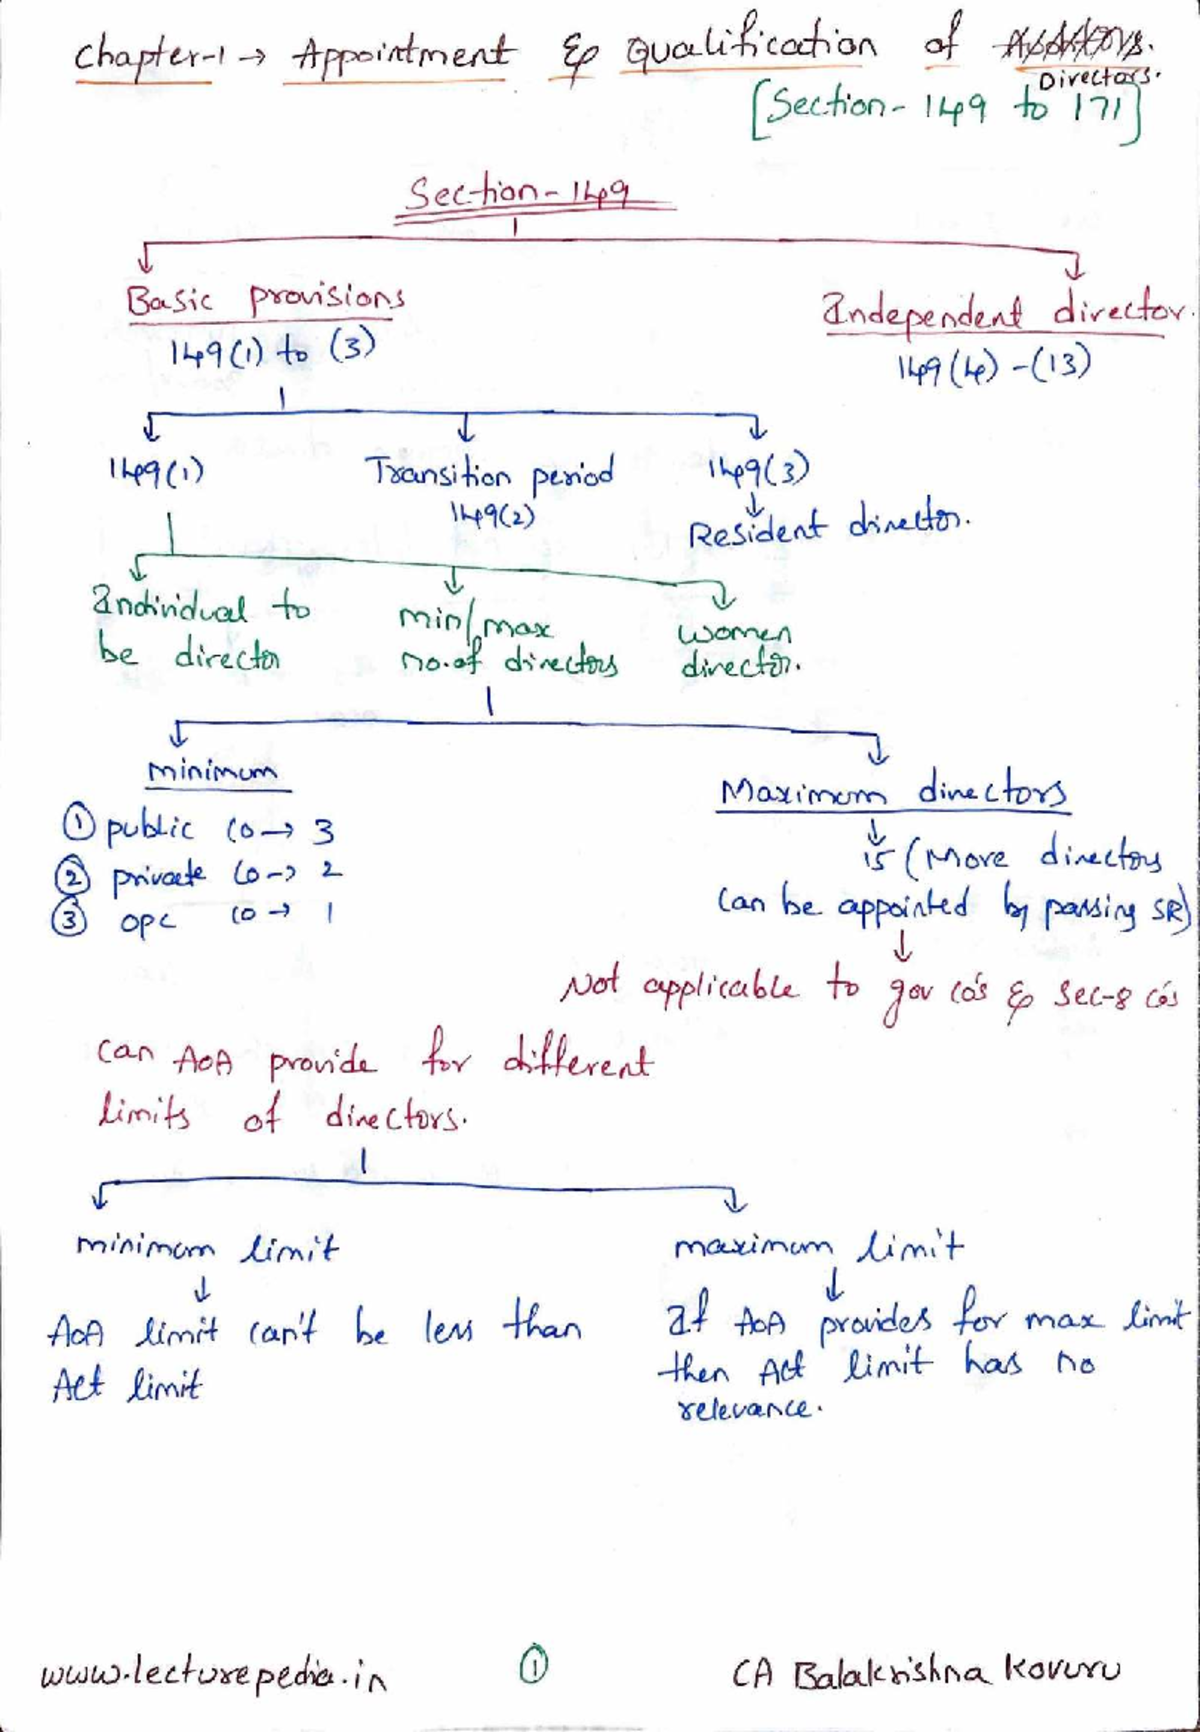 Chapter-1 → Appointment & Qualification of
Directors.
[Section- 149 to 171]
Section-149
Basic provisions
149(1) to (3)
Independent director.
149(4) -(13)
149(1)
Transition period
149(2)
149(3)
↓
Resident director.
Individual to
be director
min/max
no.of directors
women
director.
minimum
① public co → 3
② private co → 2
③ OPC co → 1
Maximum directors
↓
15 (More directors
can be appointed by passing SR)
↓
Not applicable to gov co's & sec-8 co's
can AOA provide for different
limits of directors.
minimum limit
↓
AOA limit can't be less than
Act limit
maximum limit
↓
If AOA provides for max limit
then Act limit has no
relevance.
www.lecturepedia.in
①
CA Balakrishna Kovuru